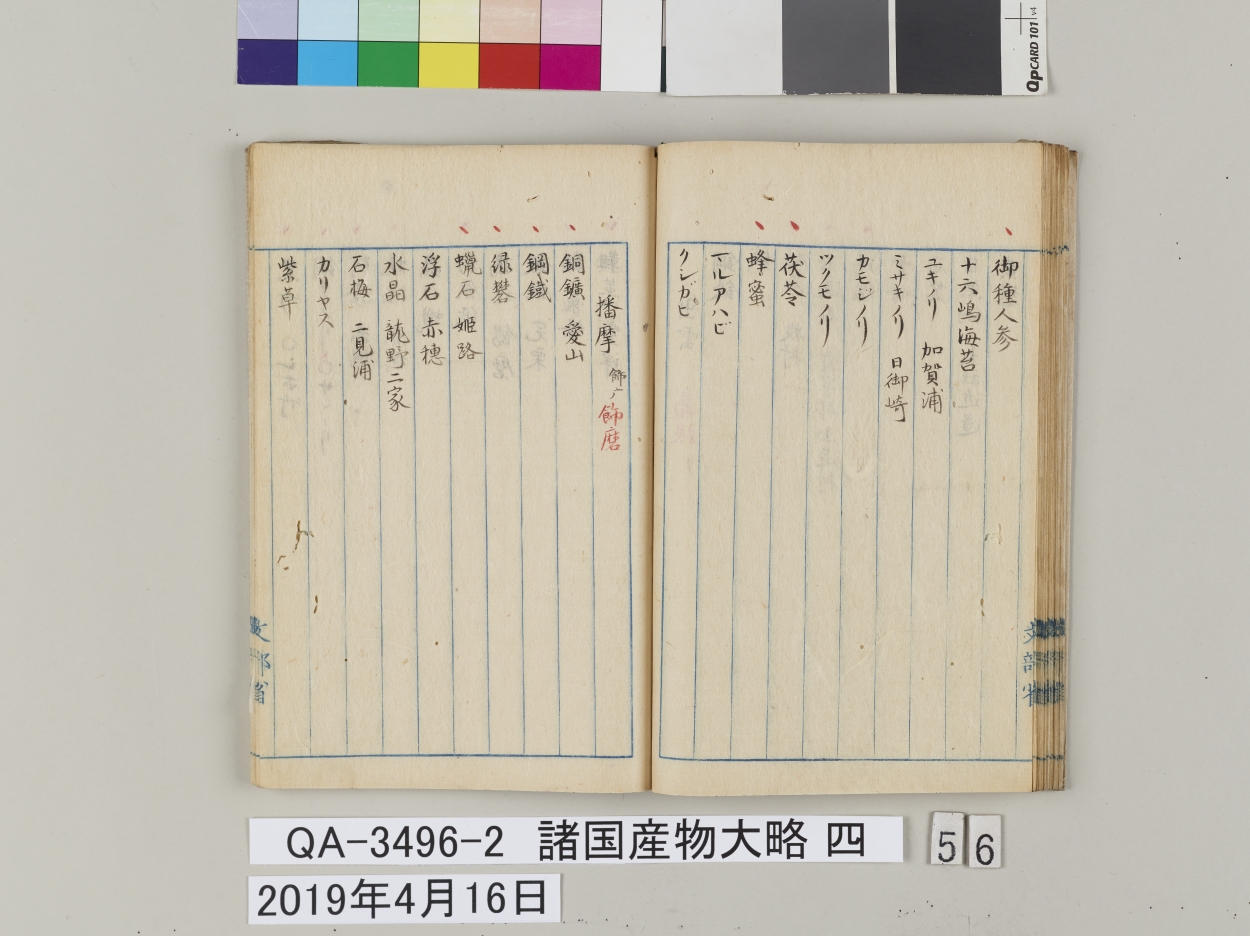 QPCARD 101 v4
御種人参
十六嶋海苔
ユキノリ 加賀浦
ミサキノリ 日御崎
カモジノリ
ツクモノリ
茯苓
蜂蜜
マルアハビ
クシガヒ
播摩 飾广 飾磨
銅鑛 愛山
鋼鐡
緑礬
蠟石 姫路
浮石 赤穂
水晶 龍野二家
石梅 二見浦
カリヤス
紫草
文部省
文部省
QA-3496-2 諸国産物大略 四
56
2019年4月16日